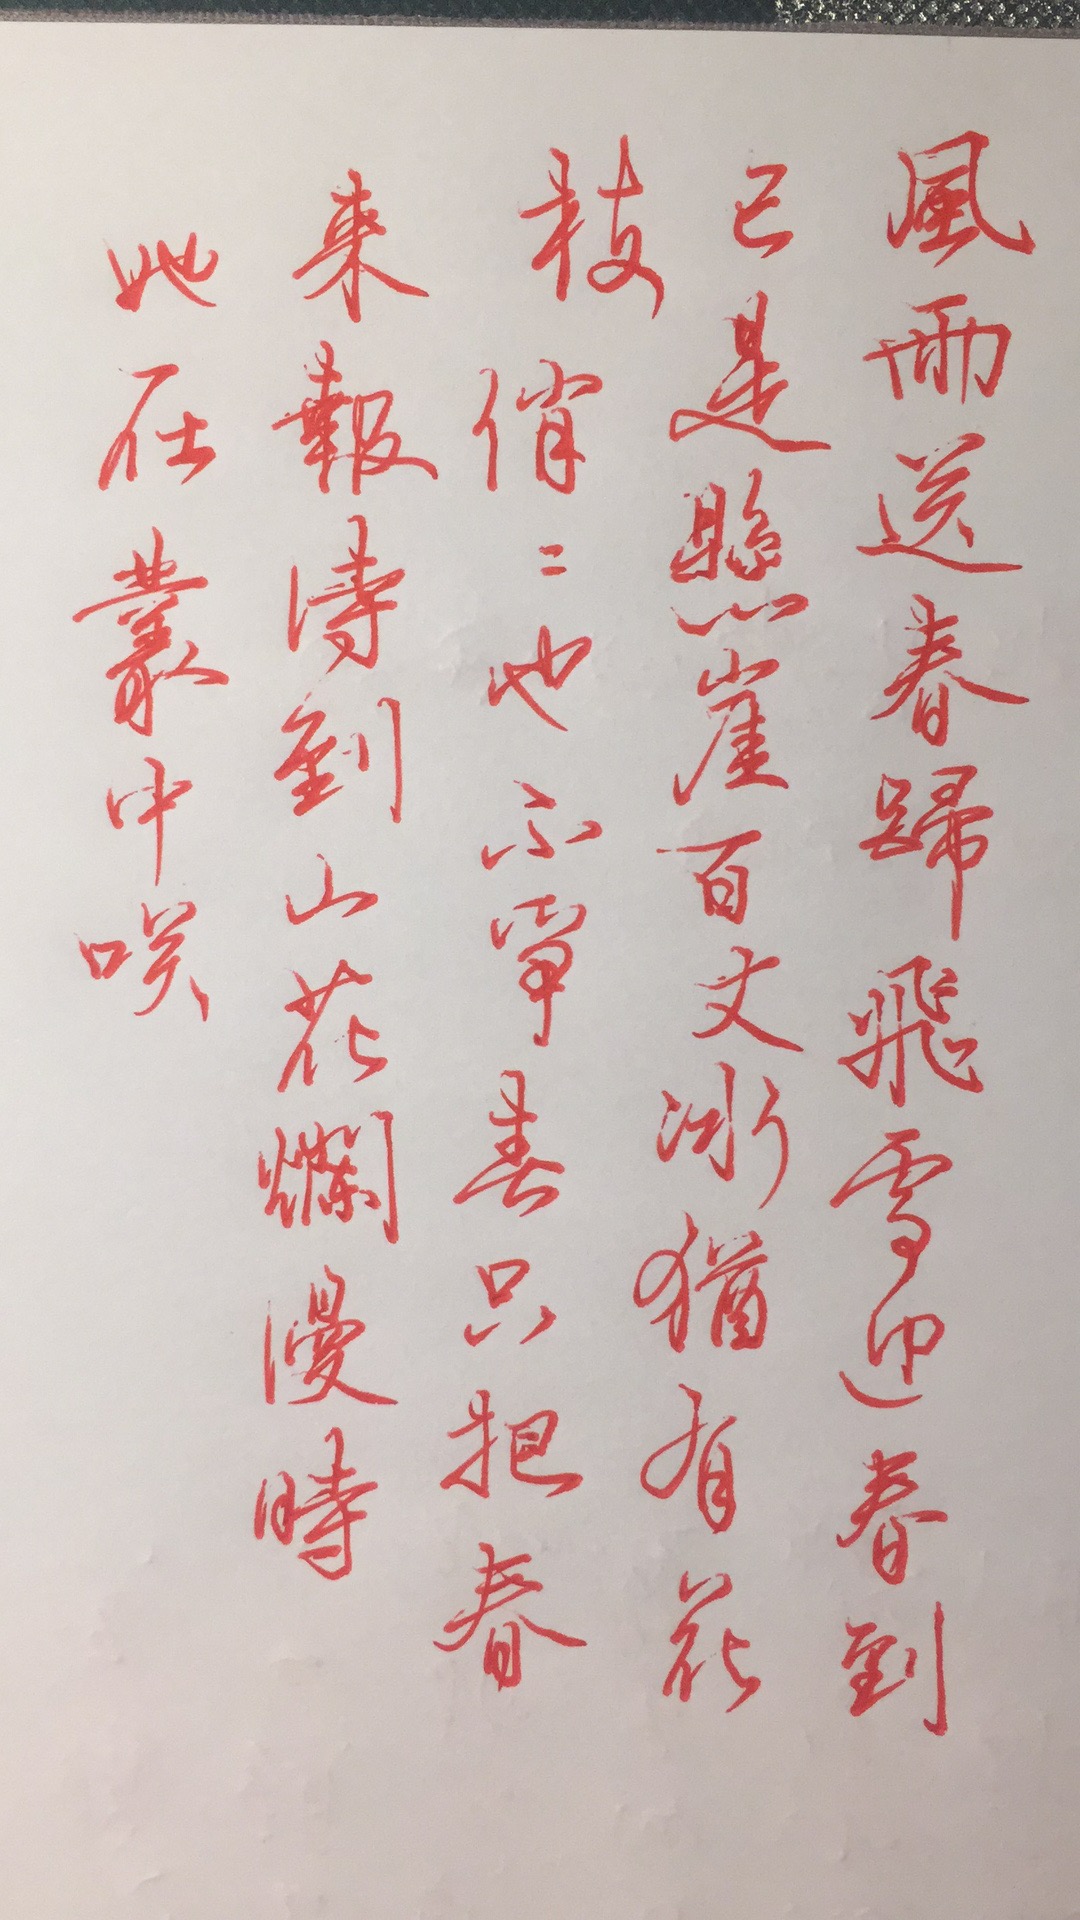 風雨送春歸飛雪迎春到
已是懸崖百丈冰猶有花
枝俏二也不爭春只把春
來報待到山花爛漫時
她在叢中咲